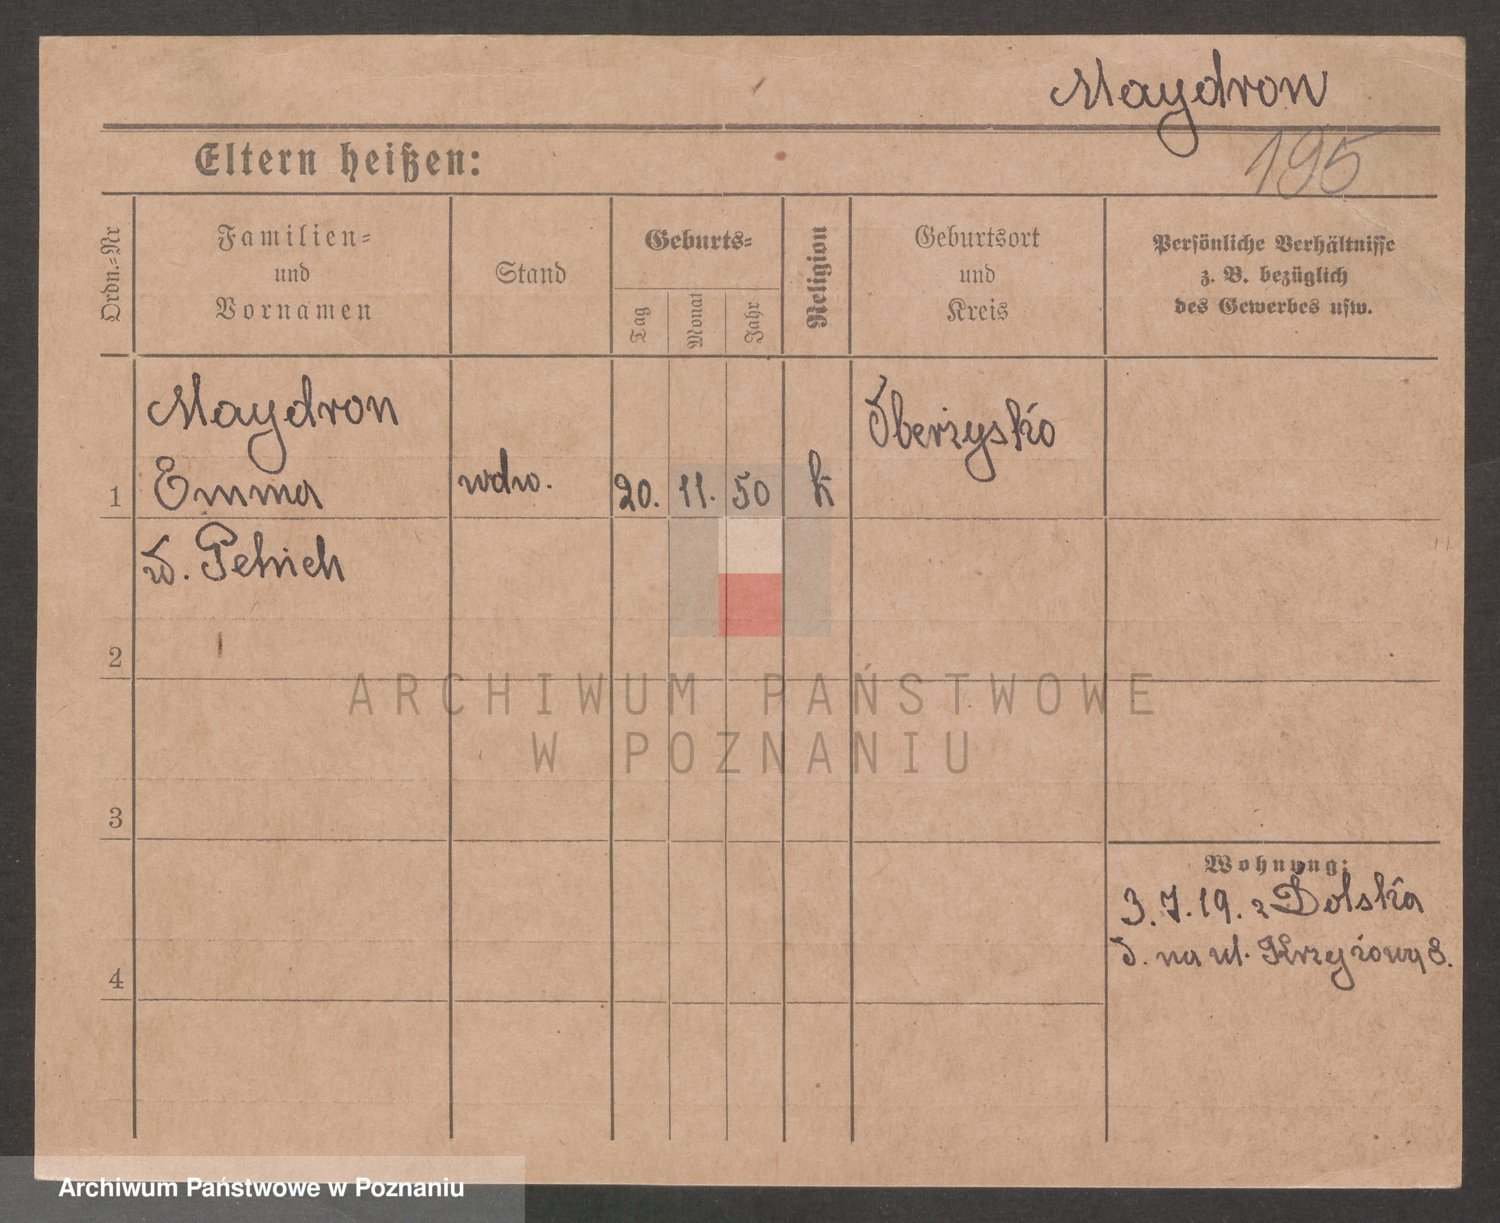 Maydron
Eltern heißen:
195
Ordn.-Nr
Familien-
und
Vornamen
Stand
Geburts-
Tag
Monat
Jahr
Religion
Geburtsort
und
Kreis
Persönliche Verhältnisse
z. B. bezüglich
des Gewerbes usw.
Maydron
1 Emma wdw. 20. 11. 50 k
Oberzysko
Petrich
2
ARCHIWUM PAŃSTWOWE
W POZNANIU
3
Wohnung:
3.7.19. z Dolska
na ul. Krzyżowy 8.
4
Archiwum Państwowe w Poznaniu